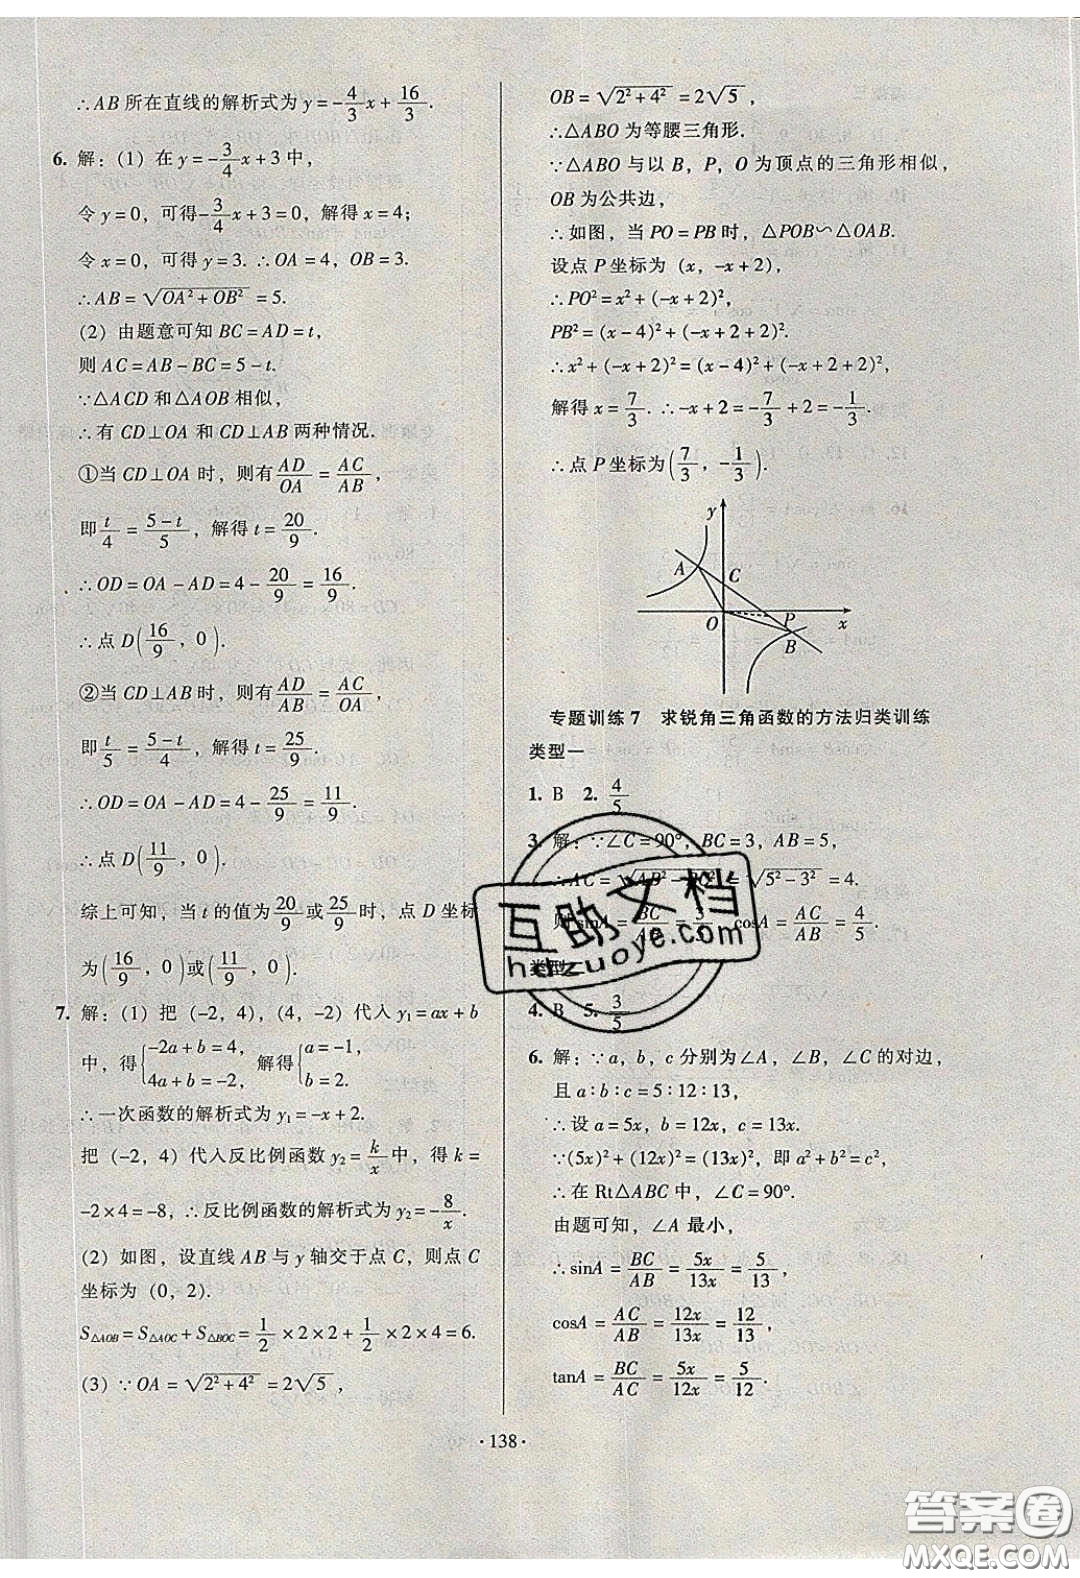 ∴AB 所在直线的解析式为 y=-4/3x+16/3.
6. 解：(1) 在 y=-3/4x+3 中，
令 y=0，可得-3/4x+3=0，解得 x=4；
令 x=0，可得 y=3. ∴OA=4，OB=3.
∴AB=√(OA²+OB²)=5.
(2) 由题意可知 BC=AD=t，
则 AC=AB-BC=5-t.
∵△ACD 和△AOB 相似，
∴有 CD⊥OA 和 CD⊥AB 两种情况.
①当 CD⊥OA 时，则有 AD/OA=AC/AB，
即 t/4=(5-t)/5，解得 t=20/9.
∴OD=OA-AD=4-20/9=16/9.
∴点 D(16/9，0).
②当 CD⊥AB 时，则有 AD/AB=AC/OA，
即 t/5=(5-t)/4，解得 t=25/9.
∴OD=OA-AD=4-25/9=11/9.
∴点 D(11/9，0).
综上可知，当 t 的值为 20/9 或 25/9 时，点 D 坐标
为(16/9，0)或(11/9，0).
7. 解：(1) 把 (-2，4)，(4，-2) 代入 y₁=ax+b
中，得{-2a+b=4，4a+b=-2，解得{a=-1，b=2.
∴一次函数的解析式为 y₁=-x+2.
把 (-2，4) 代入反比例函数 y₂=k/x 中，得 k=
-2×4=-8，∴反比例函数的解析式为 y₂=-8/x.
(2) 如图，设直线 AB 与 y 轴交于点 C，则点 C
坐标为 (0，2).
S△AOB=S△AOC+S△BOC=1/2×2×2+1/2×2×4=6.
(3) ∵OA=√(2²+4²)=2√5，
OB=√(2²+4²)=2√5，
∴△ABO 为等腰三角形.
∵△ABO 与以 B，P，O 为顶点的三角形相似，
OB 为公共边，
∴如图，当 PO=PB 时，△POB∽△OAB.
设点 P 坐标为 (x，-x+2)，
∴PO²=x²+(-x+2)²，
PB²=(x-4)²+(-x+2+2)².
∴x²+(-x+2)²=(x-4)²+(-x+2+2)²，
解得 x=7/3. ∴-x+2=-7/3+2=-1/3.
∴点 P 坐标为(7/3，-1/3).
y
A
C
O
P
x
B
专题训练 7 求锐角三角函数的方法归类训练
类型一
1. B 2. 4/5
3. 解：∵∠C=90°，BC=3，AB=5，
∴AC=√(AB²-BC²)=√(5²-3²)=4.
则 sinA=BC/AB=3/5，cosA=AC/AB=4/5.
类型二
4. B 5. 3/5
6. 解：∵a，b，c 分别为∠A，∠B，∠C 的对边，
且 a∶b∶c=5∶12∶13，
∴设 a=5x，b=12x，c=13x.
∵(5x)²+(12x)²=(13x)²，即 a²+b²=c²，
∴在 Rt△ABC 中，∠C=90°.
由题可知，∠A 最小，
∴sinA=BC/AB=5x/13x=5/13，
cosA=AC/AB=12x/13x=12/13，
tanA=BC/AC=5x/12x=5/12.
·138·
互助文档
hdzuoye.com
答案圈
MXQE.COM